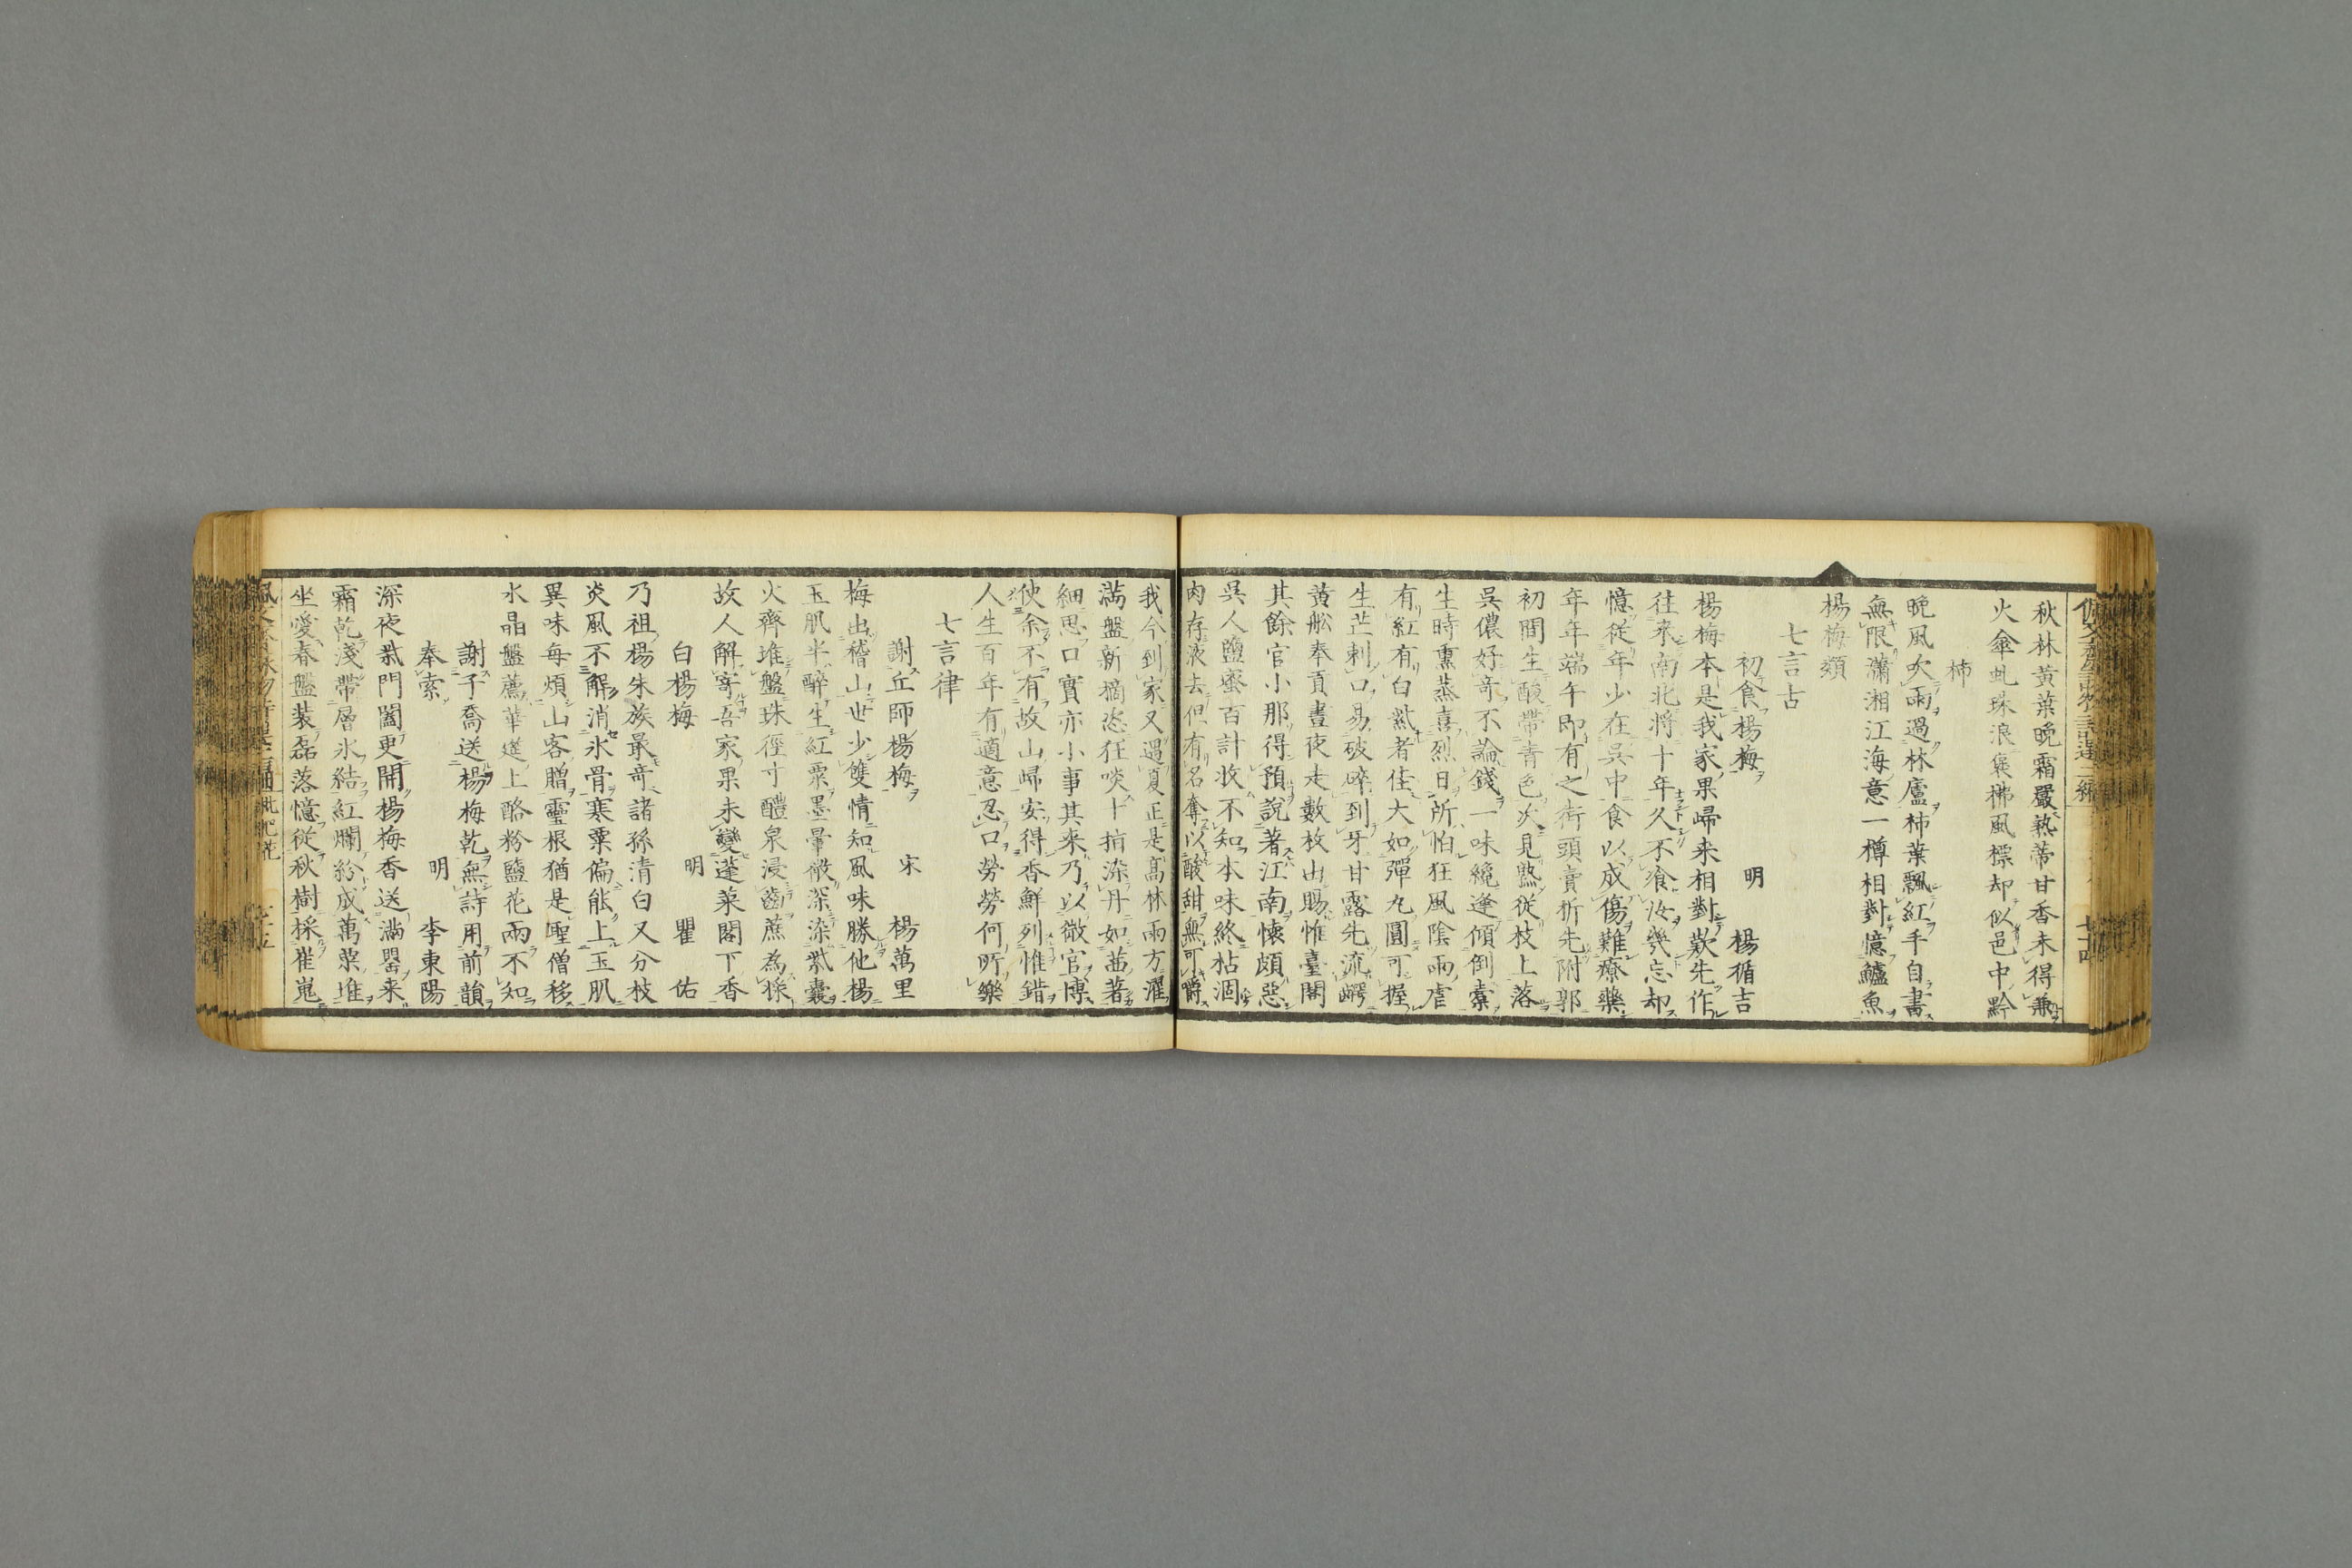 秋林黃葉晚霜嚴熟蒂甘香未得兼
火傘虬珠浪褒稱風標却似邑中黔
柿
晚風吹雨過林廬柿葉飄紅手自書
無限瀟湘江海意一樽相對憶鱸魚
楊梅類
七言古
初食楊梅 明 楊循吉
楊梅本是我家果歸来相對歎先作
往來南北將十年久不飡汝幾忘却
憶從年少在吳中食以成傷難療藥
年年端午即有之街頭賣折先附郭
初間生酸帶青色次見熟從枝上落
吳儂好奇不論錢一味纔逢傾倒橐
生時熏蒸喜烈日所怕狂風陰雨虐
有紅有白紫者佳大如彈丸圓可握
生芒刺口易破碎到牙甘露先流齶
黃船奉貢晝夜走數枚出賜惟臺閣
其餘官小那得預說著江南懷頗惡
吳人鹽蜜百計收不知本味終枯涸
肉存液去但有名奪以酸甜無可嚼
我今到家又過夏正是髙林雨方濯
滿盤新摘恣狂啖十指染丹如茜著
細思口實亦小事其來乃以微官博
使余不有故山歸安得香鮮列惟錯
人生百年有適意忍口勞勞何所樂
七言律
謝丘師楊梅 宋 楊萬里
梅出稽山世少雙情知風味勝他楊
玉肌半醉生紅粟墨暈微深染紫囊
火齊堆盤珠徑寸醴泉浸齒蔗為漿
故人解寄吾家果未變蓬萊閣下香
白楊梅 明 瞿佑
乃祖楊朱族最奇諸孫清白又分枝
炎風不解消氷骨寒粟偏能上玉肌
異味每煩山客贈靈根猶是聖僧移
水晶盤薦華筵上酪粉鹽花兩不知
謝于喬送楊梅乾無詩用前韻
奉索 明 李東陽
深夜柴門闔更開楊梅香送滿罌来
霜乾淺帶層氷結紅爛紛成萬粟堆
坐愛春盤裝磊落憶從秋樹採崔嵬